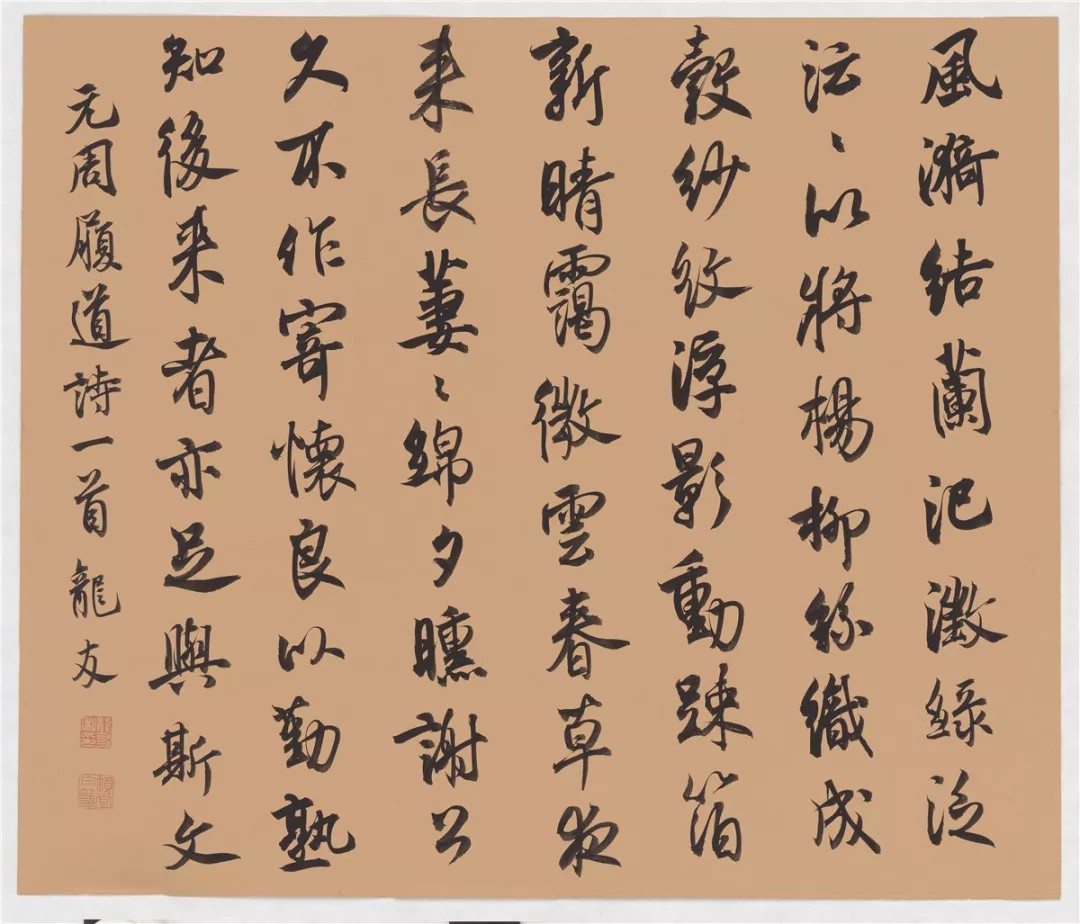 風漪結蘭汜澂綠泛
沄〻以將楊柳絲織成
縠紗紋浮影動踈箔
新晴靄微雲春草夜
来長萋〻綿夕曛謝公
久不作寄懷良以勤孰
知後来者亦足與斯文
元周履道詩一首 龍友